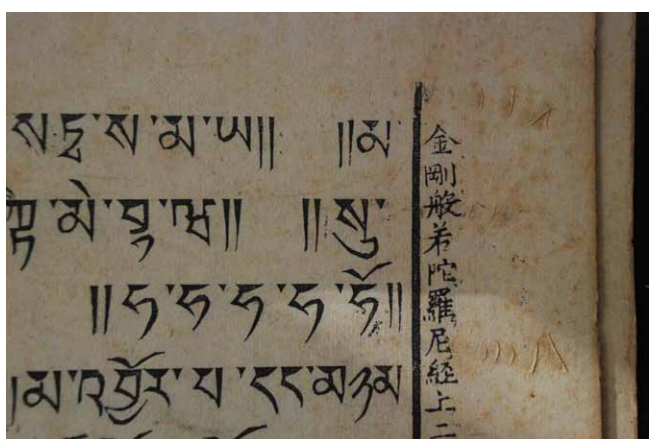 སཏྭ་ས་མ་ཡ།། །།མ
མེ་བྷ་ཝ།། །།སུ་
།།ཧ་ཧ་ཧ་ཧ་ཧོ།།
།མ་འབྱོར་པ་དང་མཉམ
金剛般若陀羅尼経上二